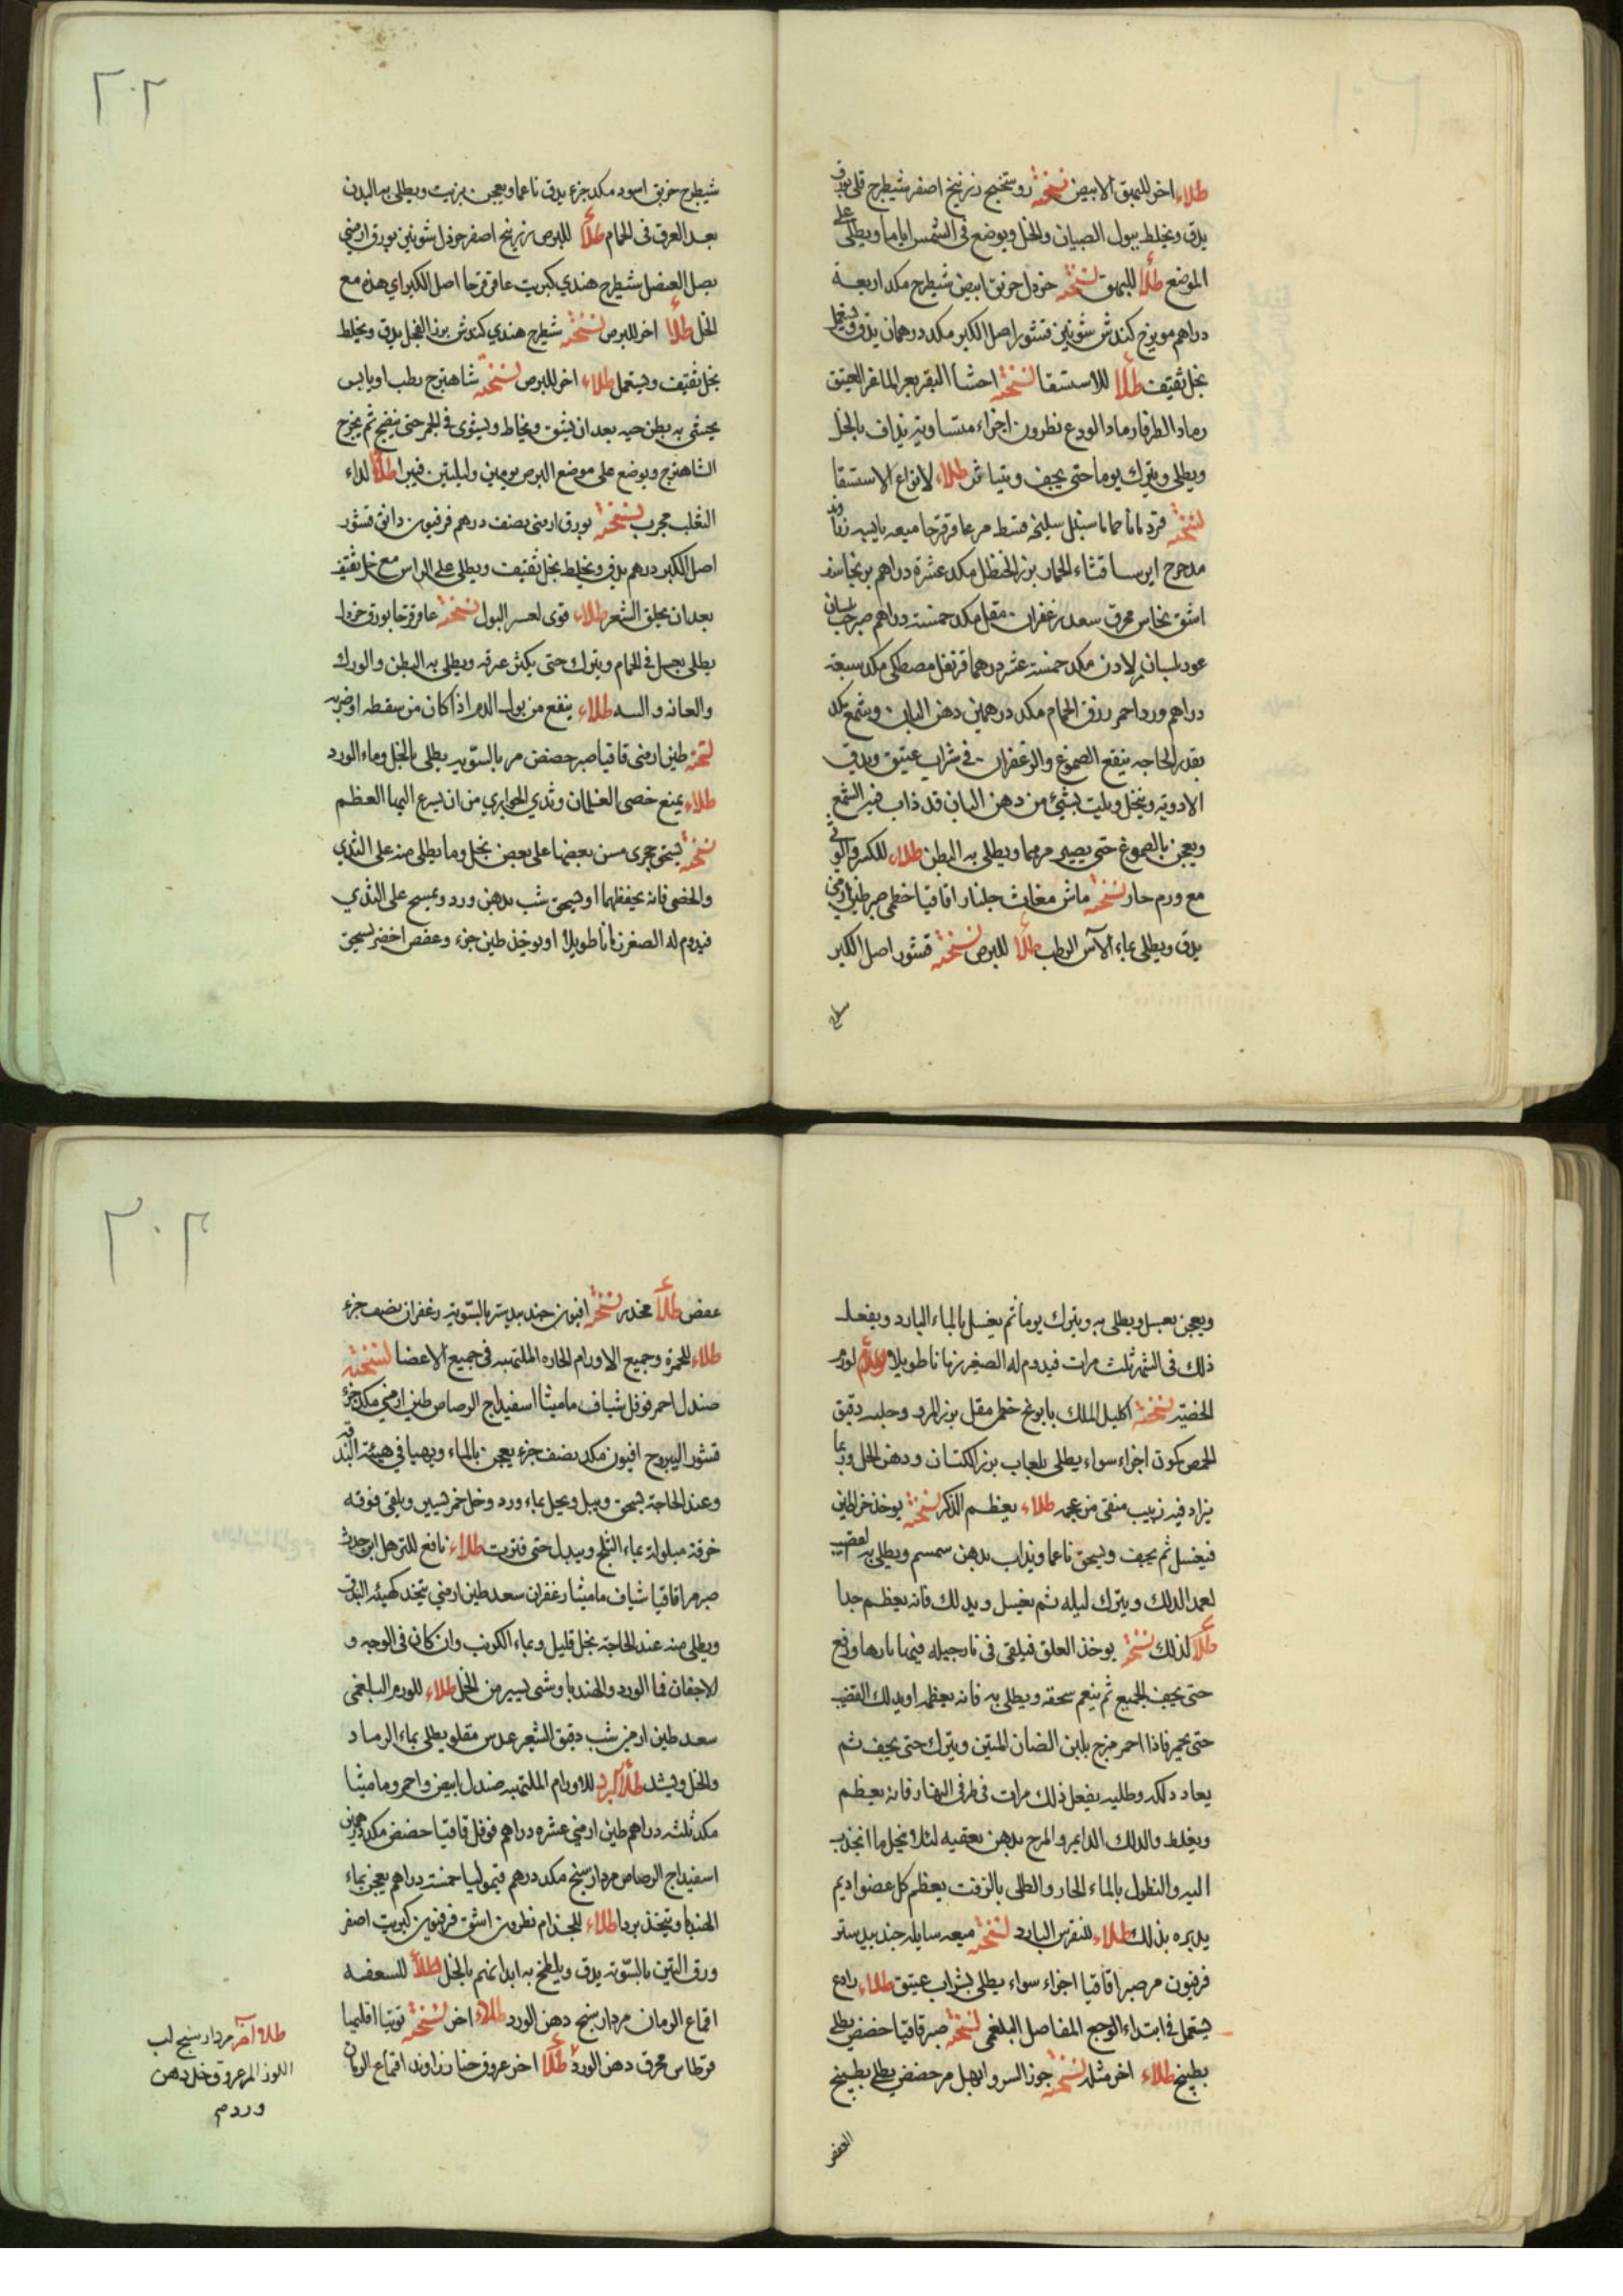 طلاء اخر للبهق الابيض نسخته روسختج زرنيخ اصفر شيطرج قلى بورق
يدق ويخلط ببول الصبيان والخل ويوضع فى الشمس اياما ويطلى على
الموضع طلاء للبهق نسخته خردل خربق ابيض شيطرج مكد اربعة
دراهم مويزج كندش شونيز قشور اصل الكبر مكد درهمان يدق ويستعمل
بخل ثقيف طلاء للاستسقا نسخته احشا البقر بعر الماعز العتيق
رماد الطرفا رماد الودع نطرون اجزاء متساويه يداف بالخل
ويطلى ويترك يوما حتى يجف طلاء لانواع الاستسقا
نسخته قردمانا حماما سنبل سليخه قسط مر عاقرقرحا ميعه يابسه
مدحرج ايرسا قثاء الحمار بزر الحنظل مكد عشرة دراهم
اشق نحاس محرق سعد زعفران مقل مكد خمسة دراهم صبر حب بلسان
عود بلسان لادن مكد خمسة عشر درهما قرنفل مصطكى مكد سبعة
دراهم ورد احمر زرق الحمام مكد درهمين دهن البان وشمع مكد
بقدر الحاجه ينقع الصموغ والزعفران فى شراب عتيق ويدق
الادويه وينخل ويلت بشئ من دهن البان قد ذاب فيه الشمع
ويعجن بالصموغ حتى يصير مرهما ويطلى به البطن طلاء للكسر والوثى
مع ورم حار نسخته ماش مغاث جلنار اقاقيا خطمى صبر طين ارمنى
يدق ويطلى بماء الآس الرطب طلاء للبرص نسخته قشور اصل الكبر
٢٠٢
شيطرج خربق اسود مكد جزء يدق ناعما ويعجن بزيت ويطلى به البدن
بعد العرق فى الحمام طلاء للبرص زرنيخ اصفر خردل شونيز بورق ارمنى
بصل العنصل شيطرج هندي كبريت عاقرقرحا اصل الكبر اي هذه مع
الخل طلاء اخر للبرص نسخته شيطرج هندي كندش بزر الفجل يدق ويخلط
بخل ثقيف ويستعمل طلاء اخر للبرص نسخته شاهترج رطب او يابس
يحشى به بطن حيه بعد ان يشق ويخاط ويشوى فى الجمر حتى ينضج ثم يخرج
الشاهترج ويوضع على موضع البرص يومين وليلتين فيبرا طلاء لداء
الثعلب مجرب نسخته بورق ارمنى نصف درهم فرفيون دانق قشور
اصل الكبر درهم يدق ويخلط بخل ثقيف ويطلى على الراس مع خل ثقيف
بعد ان يحلق الشعر طلاء قوى لعسر البول نسخته عاقرقرحا بورق خردل
يطلى بعسل فى الحمام ويترك حتى يكثر عرقه ويطلى به البطن والورك
والعانه والسه طلاء ينفع من بول الدم اذا كان من سقطه او ضربه
نسخته طين ارمنى قاقيا صبر حضض مر بالسويه يطلى بالخل وماء الورد
طلاء يمنع خصى الغلمان وثدي الجواري من ان يسرع اليها العظم
نسخته يسحق حجرى مسن بعضها على بعض بخل وما يطلى منه على الثدي
والخصى فانه يحفظهما او يسحق شب بدهن ورد ويمسح على الثدي
فيدوم له الصغر زمانا طويلا او يوخذ طين جزء وعفص اخضر يسحق
ويعجن بعسل ويطلى به ويترك يوما ثم يغسل بالماء البارد ويفعل
ذلك فى الشهر ثلث مرات فيدوم له الصغر زمانا طويلا طلاء لورم
الخصيه نسخته اكليل الملك بابونج خطمى مقل بزر المرو وحلبه دقيق
الحمص كمون اجزاء سواء يطلى بلعاب بزر الكتان ودهن الخل وربما
يزاد فيه زبيب منقى من عجمه طلاء يعظم الذكر نسخته يوخذ خراطين
فيغسل ثم يجفف ويسحق ناعما ويذاب بدهن سمسم ويطلى به القضيب
بعد الدلك ويترك ليله ثم يغسل ويدلك فانه يعظم جدا
طلاء لذلك نسخته يوخذ العلق فيلقى فى نارجيله فيها ماءها ورفع
حتى يجف الجميع ثم ينعم سحقه ويطلى به فانه يعظمه او يدلك القضيب
حتى يحمر فاذا احمر مزج بلبن الضان المتين ويترك حتى يجف ثم
يعاد دلكه وطليه يفعل ذلك مرات فى طرفى النهار فانه يعظم
ويغلظ والدلك الدايم والمرخ بدهن يعقبه لئلا يتحلل ما انجذب
اليه والنطول بالماء الحار والطلى بالزفت يعظم كل عضو اديم
بذلك طلاء للنقرس البارد نسخته ميعه سايله جندبيدستر
فرفيون مر صبر اقاقيا اجزاء سواء يطلى بشراب عتيق طلاء رادع
يستعمل فى ابتداء الوجع المفاصل البلغمى نسخته صبر قاقيا حضض يطلى
بطبيخ طلاء اخر مثله نسخته جوز السرو ابهل مر حضض يطلى بطبيخ
العفص
٢٠٣
عفص طلاء مخدر نسخته افيون جندبيدستر بالسويه زعفران نصف جزء
طلاء للحمرة وجميع الاورام الحاره الملتهبه فى جميع الاعضا نسخته
صندل احمر فوفل شياف ماميثا اسفيداج الرصاص طين ارمنى مكد جزء
قشور اليبروح افيون مكد نصف جزء يعجن بالماء ويهيا فى هيئة البندقه
وعند الحاجة يسحق ويبل ويحل بماء ورد وخل خمر يسير ويلقى فوقه
خرقة مبلولة بماء الثلج ويبدل حتى فترت طلاء نافع للترهل اين حدث
صبر مر اقاقيا شياف ماميثا زعفران سعد طين ارمنى يتخذ كهيئه البندق
ويطلى منه عند الحاجة بخل قليل وبماء الكرنب وان كان فى الوجه و
الاجفان فما الورد والهندبا وشى يسير من الخل طلاء للورم البلغمى
سعد طين ارمنى شب دقيق الشعير عدس مقلو يطلى بماء الرماد
والخل ويشد طلاء يبرد للاورام الملتهبه صندل ابيض واحمر وماميثا
مكد ثلثه دراهم طين ارمنى عشره دراهم فوفل قاقيا حضض مكد درهمين
اسفيداج الرصاص مردارسنج مكد درهم قيموليا خمسة دراهم يعجن بماء
الهندبا ويتخذ بردا طلاء للجذام نطرون اشق فرفيون كبريت اصفر
ورق التين بالسويه يدق ويلطخ به ابدانهم بالخل طلاء للسعفه
اقماع الرمان مردارسنج دهن الورد طلاء اخر نسخته توتيا اقليميا
قرطاس محرق دهن الورد طلاء اخر عروق حنا زراوند اقماع الرمان
طلاء آخر مردارسنج لب
اللوز المر عروق خل دهن
ورد